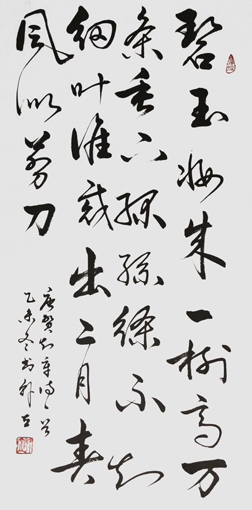 碧玉妝成一樹高万
条垂下绿丝绦不知
细叶谁裁出二月春
风似剪刀
唐贺知章诗一首
乙未冬书